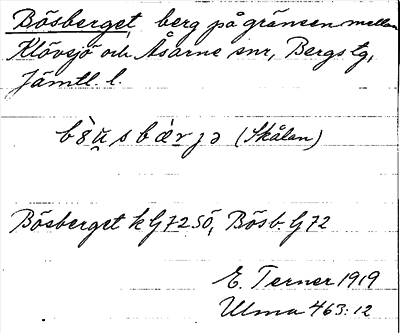 Bösberget, berg på gränsen mellan
Klövsjö och Åsarne snr, Bergs tg,
Jämtl. l.
(Skålan)
Bösberget k G72SÖ, Bösb. G72
E. Terner 1919
Ulma 463:12